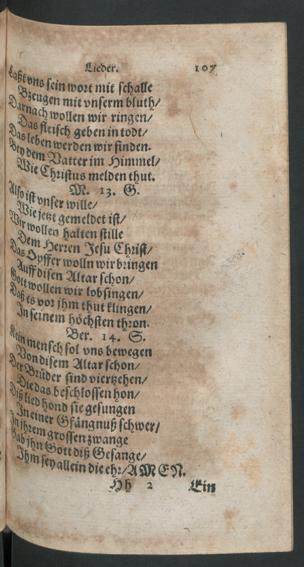 Lieder. 107
Laßt vns sein wort mit schalle
Bzeugen mit vnserm bluth/
Darnach wollen wir ringen/
Das fleisch geben in todt/
Das leben werden wir finden.
Bey dem Vatter im Himmel/
Wie Christus melden thut.
M. 13. G.
Also ist vnser wille/
Wie jetzt gemeldet ist/
Wir wollen halten stille
Dem Herren Jesu Christ/
Das Opffer wolln wir bringen
Auff disen Altar schon/
Gott wollen wir lobsingen/
Daß es vor jhm thut klingen/
In seinem höchsten thron.
Ber. 14. S.
Kein mensch sol vns bewegen
Von disem Altar schon/
Der Brüder sind viertzehen/
Die das beschlossen hon/
Diß lied hond sie gesungen
In einer Gfängnuß schwer/
In jhrem grossen zwange
Gab jhn Gott diß Gesange/
Ihm sey allein die ehr/ AMEN.
Hh 2 Ein